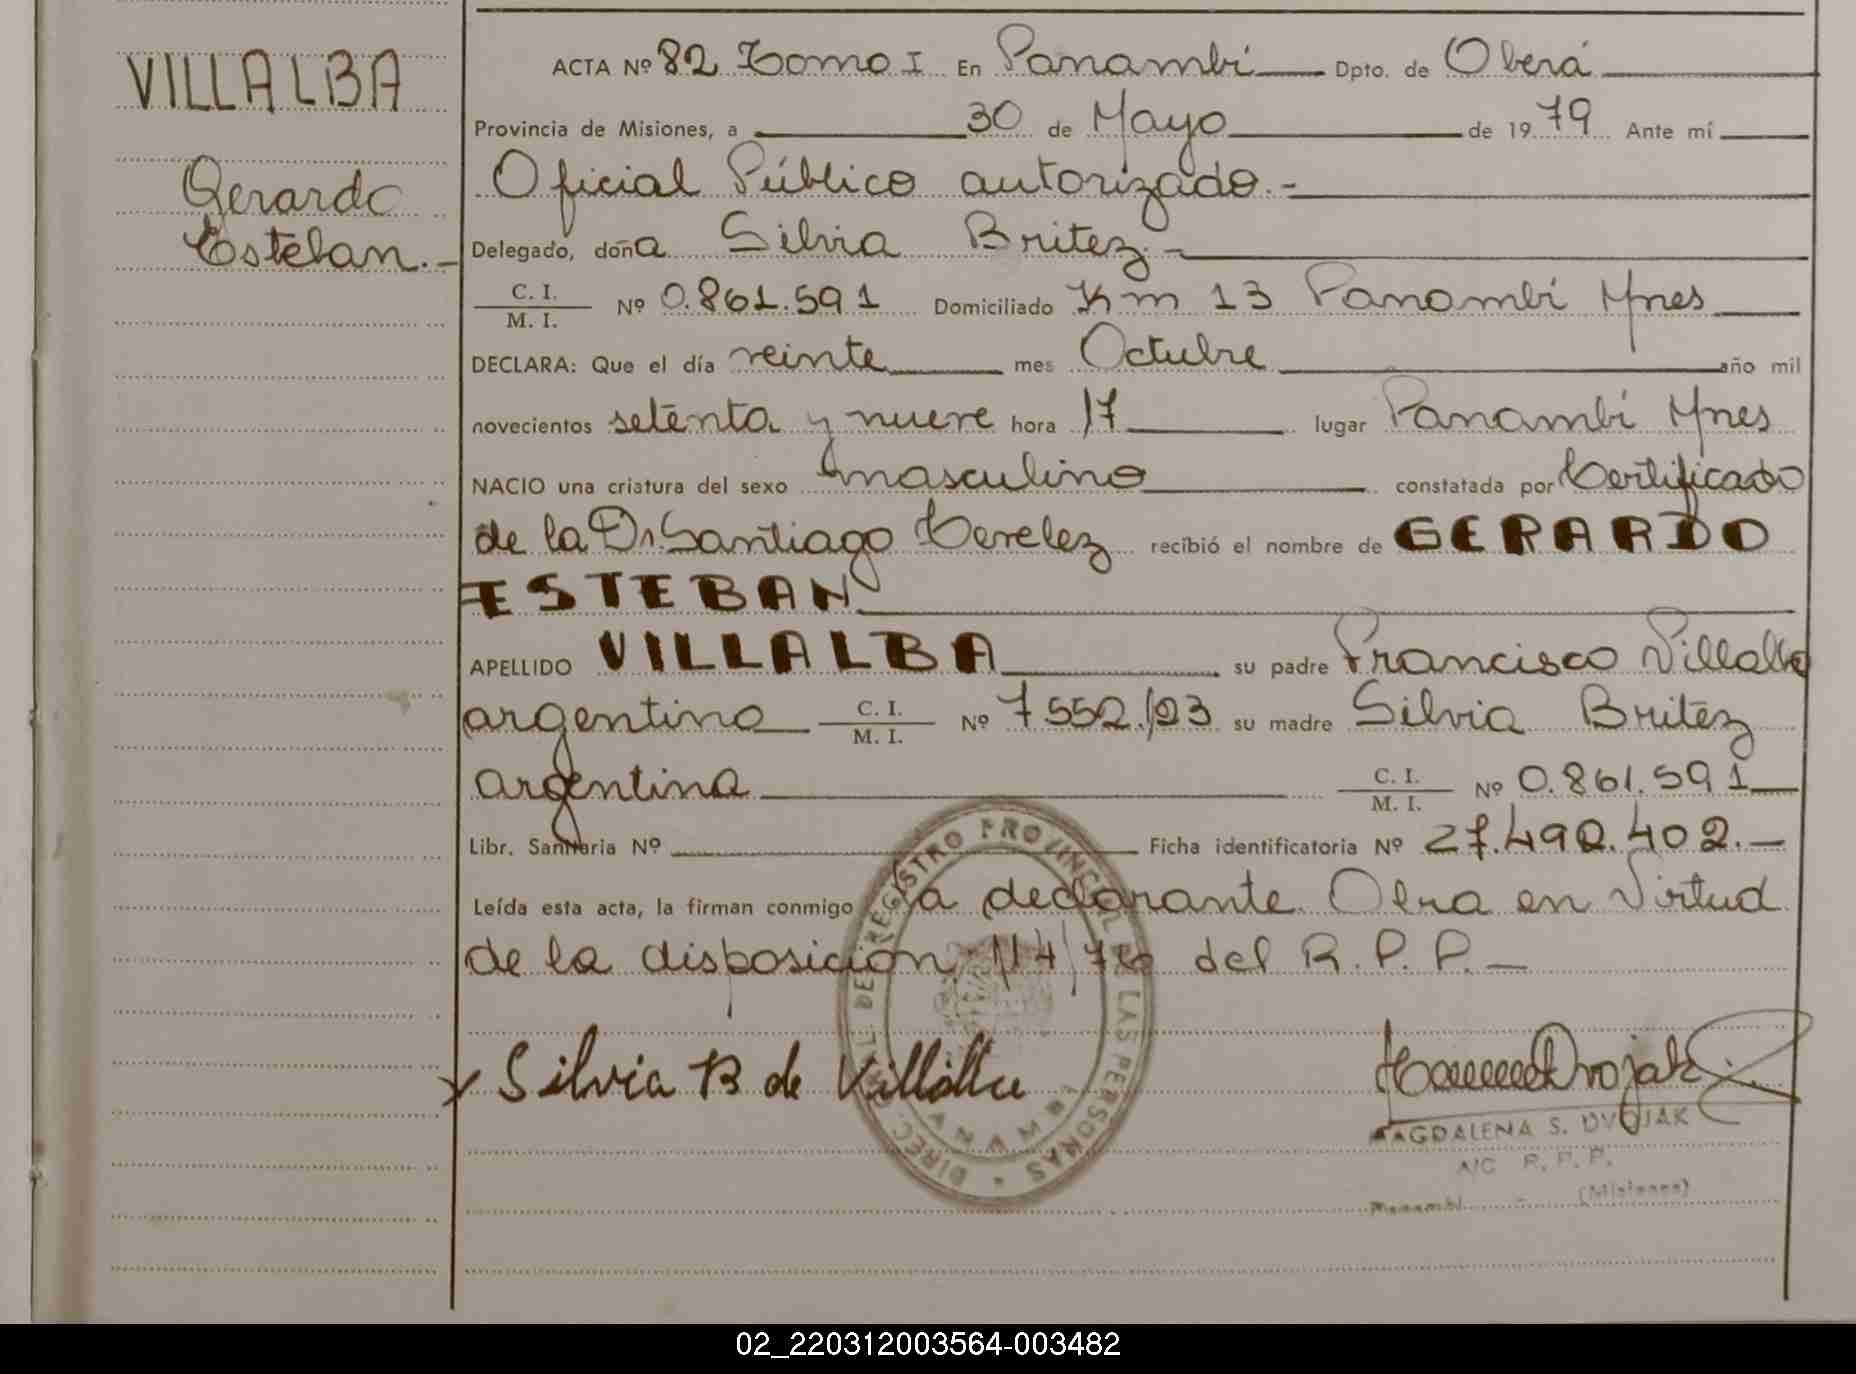 VILLALBA
Gerardo
Esteban.-
ACTA Nº 82 Tomo I En Panambí Dpto. de Oberá
Provincia de Misiones, a 30 de Mayo de 1979 Ante mí
Oficial Público autorizado.-
Delegado, doña Silvia Britez.-
C. I.
M. I. Nº 0.861.591 Domiciliado Km 13 Panambí Mnes
DECLARA: Que el día veinte mes Octubre año mil
novecientos setenta y nueve hora 17 lugar Panambí Mnes
NACIO una criatura del sexo masculino constatada por Certificado
de la Dr. Santiago recibió el nombre de GERARDO
ESTEBAN
APELLIDO VILLALBA su padre Francisco Villalba
argentino C. I.
M. I. Nº 7552.123 su madre Silvia Britez
argentina C. I.
M. I. Nº 0.861.591
Libr. Sanitaria Nº Ficha identificatoria Nº 27.492.402.-
Leída esta acta, la firman conmigo la declarante. Obra en Virtud
de la disposición, del R.P.P.-
DIREC. GRAL. DE REGISTRO PROVINCIAL DE LAS PERSONAS
PANAMBI
Silvia B de Villalba
MAGDALENA S. DVOJAK
A/C R.P.P.
Panambí - (Misiones)
02_220312003564-003482